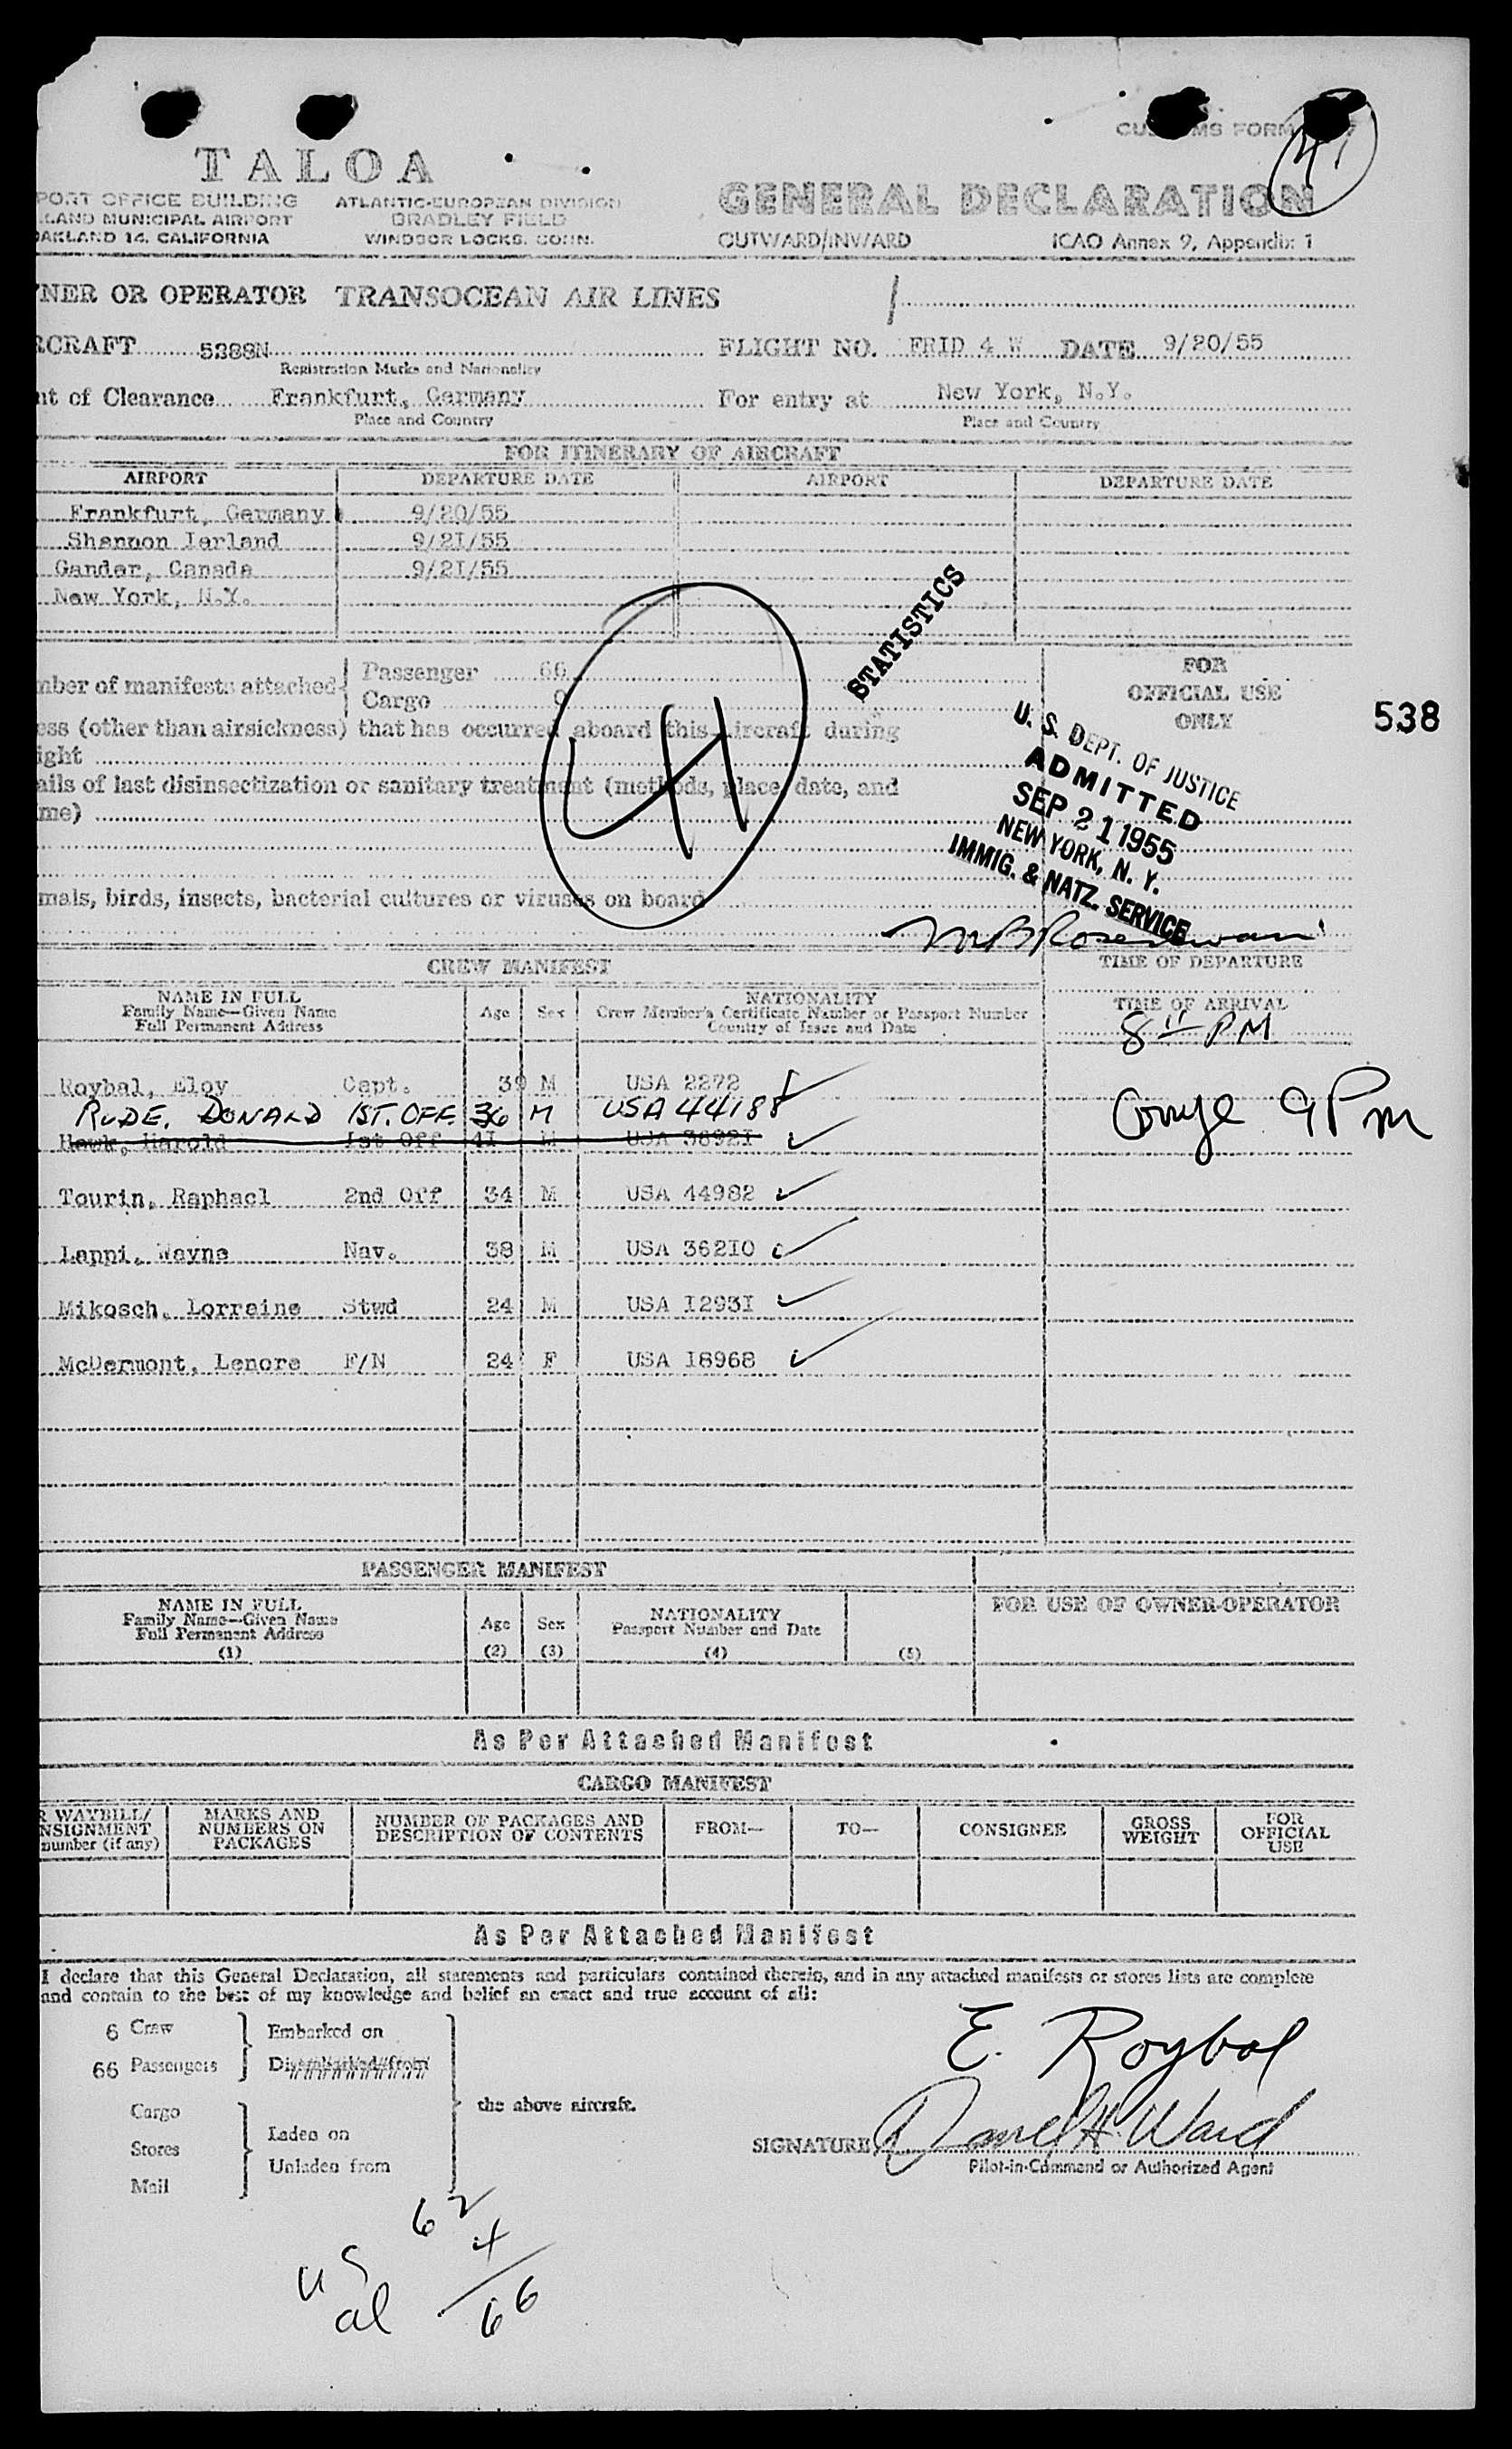 CUSTOMS FORM
41
TALOA
PORT OFFICE BUILDING
LAND MUNICIPAL AIRPORT
OAKLAND 14, CALIFORNIA
ATLANTIC-EUROPEAN DIVISION
BRADLEY FIELD
WINDSOR LOCKS, CONN.
GENERAL DECLARATION
OUTWARD/INWARD ICAO Annex 9, Appendix 1
NER OR OPERATOR TRANSOCEAN AIR LINES
RCRAFT 5288N FLIGHT NO. FRID 4 W DATE 9/20/55
Registration Marks and Nationality
nt of Clearance Frankfurt, Germany For entry at New York, N.Y.
Place and Country Place and Country
FOR ITINERARY OF AIRCRAFT
AIRPORT DEPARTURE DATE AIRPORT DEPARTURE DATE
Frankfurt, Germany 9/20/55
Shannon Ierland 9/2I/55
Gander, Canada 9/2I/55
New York, N.Y.
STATISTICS
mber of manifests attached Passenger 66
Cargo 0
41
FOR
OFFICIAL USE
ONLY
538
ess (other than airsickness) that has occurred aboard this aircraft during
ight
ails of last disinsectization or sanitary treatment (methods, place, date, and
me)
U. S. DEPT. OF JUSTICE
ADMITTED
SEP 21 1955
NEW YORK, N. Y.
IMMIG. & NATZ. SERVICE
mals, birds, insects, bacterial cultures or viruses on board
CREW MANIFEST
TIME OF DEPARTURE
NAME IN FULL
Family Name—Given Name
Full Permanent Address
Age Sex
NATIONALITY
Crew Member's Certificate Number or Passport Number
Country of Issue and Date
TIME OF ARRIVAL
8 11 PM
Roybal, Eloy Capt. 39 M USA 2272
RUDE, DONALD 1ST. OFF. 36 M USA 44188
Hawk, Harold 1st Off 4I M USA 3692I
9 PM
Tourin, Raphael 2nd Off 34 M USA 44982
Lappi, Wayne Nav. 38 M USA 362I0
Mikosch, Lorraine Stwd 24 M USA I293I
McDermont, Lenore F/N 24 F USA I8968
PASSENGER MANIFEST
NAME IN FULL
Family Name—Given Name
Full Permanent Address
(1)
Age
(2)
Sex
(3)
NATIONALITY
Passport Number and Date
(4)
(5)
FOR USE OF OWNER-OPERATOR
As Per Attached Manifest
CARGO MANIFEST
R WAYBILL/
NSIGNMENT
number (if any)
MARKS AND
NUMBERS ON
PACKAGES
NUMBER OF PACKAGES AND
DESCRIPTION OF CONTENTS
FROM—
TO—
CONSIGNEE
GROSS
WEIGHT
FOR
OFFICIAL
USE
As Per Attached Manifest
I declare that this General Declaration, all statements and particulars contained therein, and in any attached manifests or stores lists are complete
and contain to the best of my knowledge and belief an exact and true account of all:
6 Crew
66 Passengers
Embarked on
Disembarked from
Cargo
Stores
Mail
Laden on
Unladen from
the above aircraft.
E. Roybal
SIGNATURE Daniel H. Ward
Pilot-in-Command or Authorized Agent
US 62
al 4
66